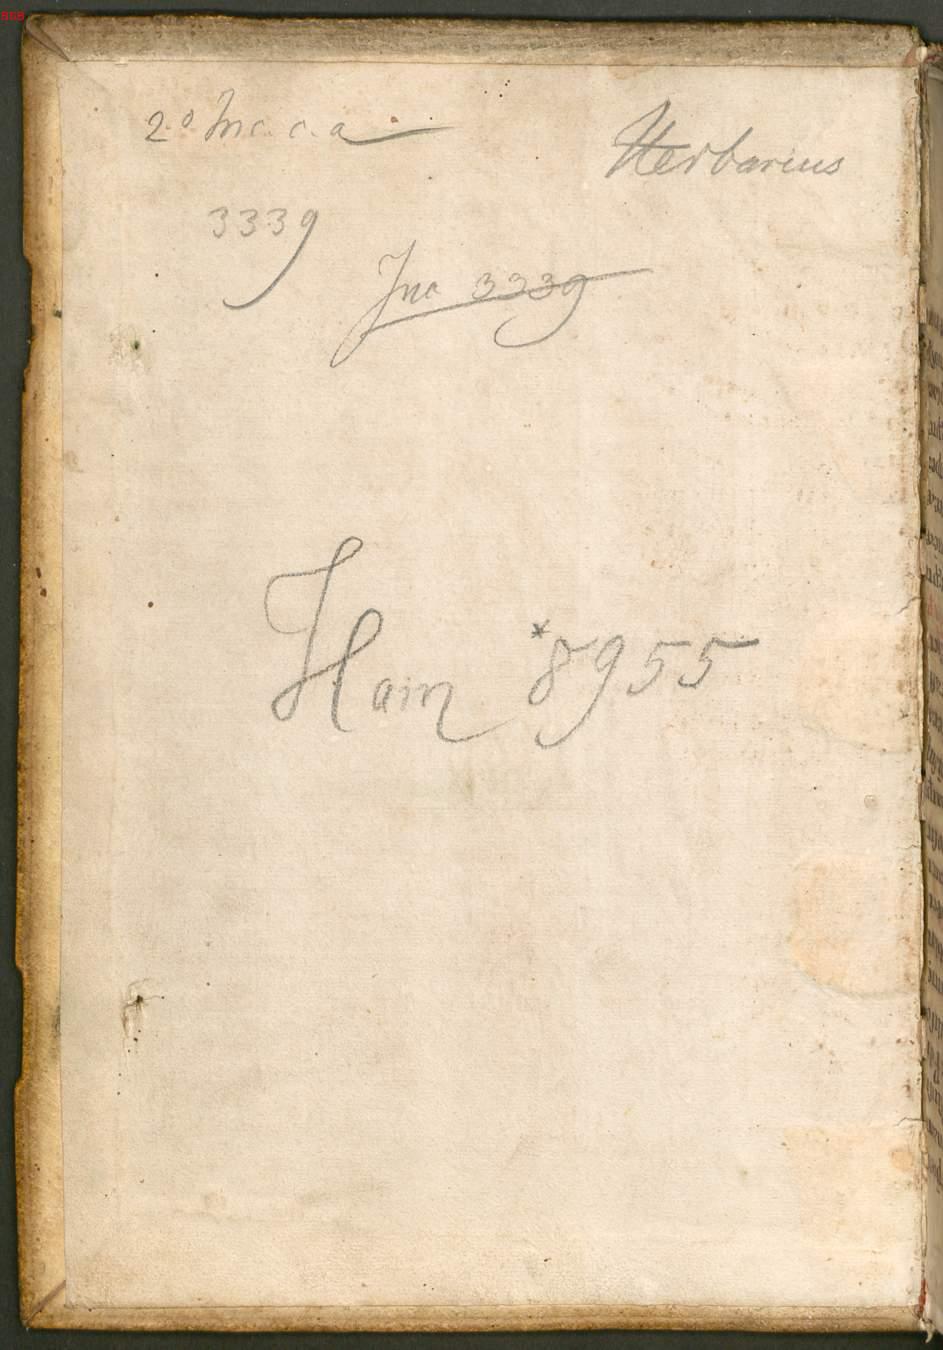 BSB
2° Inc. c. a
Herbarius
3339
Inc 3339
Hain *8955